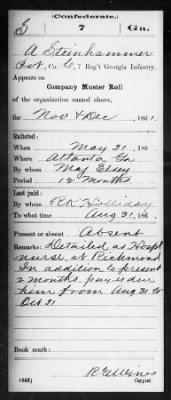 (Confederate.)
S 7 Ga.
A Steinhammer
Pvt, Co. C, 7 Reg't Georgia Infantry.
Appears on
Company Muster Roll
of the organization named above,
for Nov & Dec, 186 .
Enlisted:
When May 31, 186 .
Where Atlanta Ga
By whom Maj
Period 12 Months
Last paid:
By whom R K Holliday
To what time Aug 31, 186 .
Present or absent Absent
Remarks: Detailed as Hospl
nurse, at Richmond
In addition to present
2 months pay is due
him from Aug 31 to
Oct 31
Book mark:
(642)
Copyist.